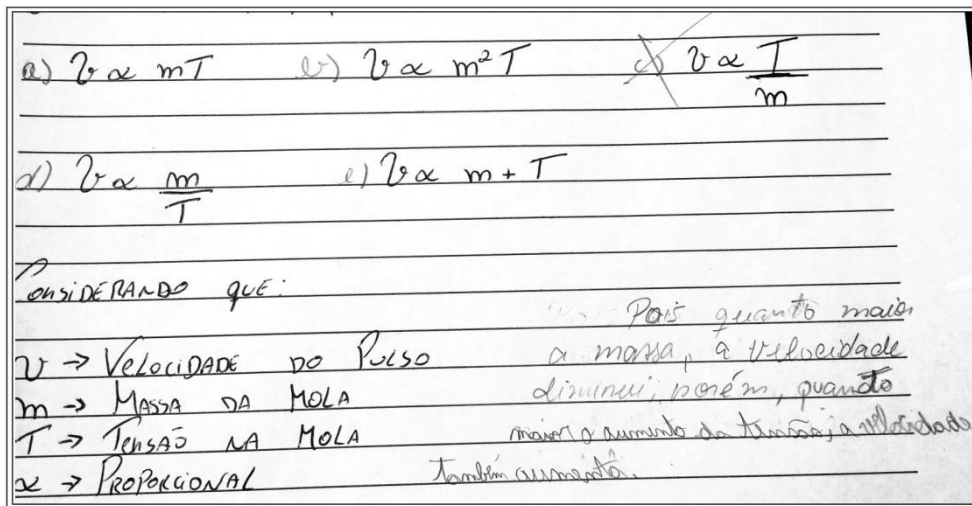 a) v ∝ mT b) v ∝ m² T c) v ∝ T/m
d) v ∝ m/T e) v ∝ m + T
CONSIDERANDO QUE:
v → VELOCIDADE DO PULSO
m → MASSA DA MOLA
T → TENSÃO NA MOLA
∝ → PROPORCIONAL
Pois quanto maior
a massa, a velocidade
diminui, porém, quanto
maior o aumento da tensão, a velocidade
também aumenta.